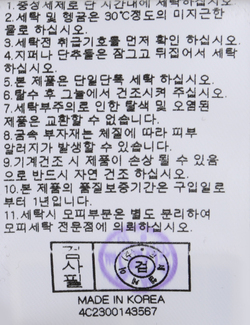 1.중성세제로 단 시간내에 세탁하십시오.
2.세탁 및 헹굼은 30℃정도의 미지근한
물로 하십시오.
3.세탁전 취급기호를 먼저 확인 하십시오.
4.지퍼나 단추들은 잠그고 뒤집어서 세탁
하십시오.
5.본 제품은 단일단독 세탁 하십시오.
6.탈수 후 그늘에서 건조시켜 주십시오.
7.세탁부주의로 인한 탈색 및 오염된
제품은 교환할 수 없습니다.
8.금속 부자재는 체질에 따라 피부
알러지가 발생할 수 있습니다.
9.기계건조 시 제품이 손상 될 수 있음
으로 반드시 자연 건조 하십시오.
10.본 제품의 품질보증기간은 구입일로
부터 1년입니다.
11.세탁시 모피부분은 별도 분리하여
모피세탁 전문점에 의뢰하십시오.
검
사
필
검
MADE IN KOREA
4C2300143567